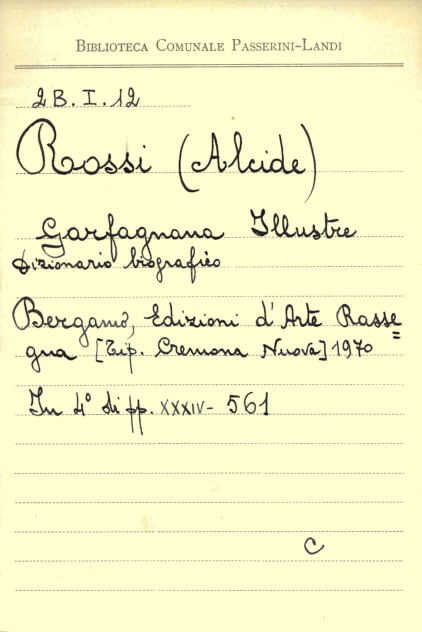 BIBLIOTECA COMUNALE PASSERINI-LANDI
2B. I. 12
Rossi (Alcide)
Garfagnana Illustre
Dizionario biografico
Bergamo, Edizioni d'Arte Rasse=
gna [Tip. Cremona Nuova] 1970
In 4° di pp. XXXIV- 561
C